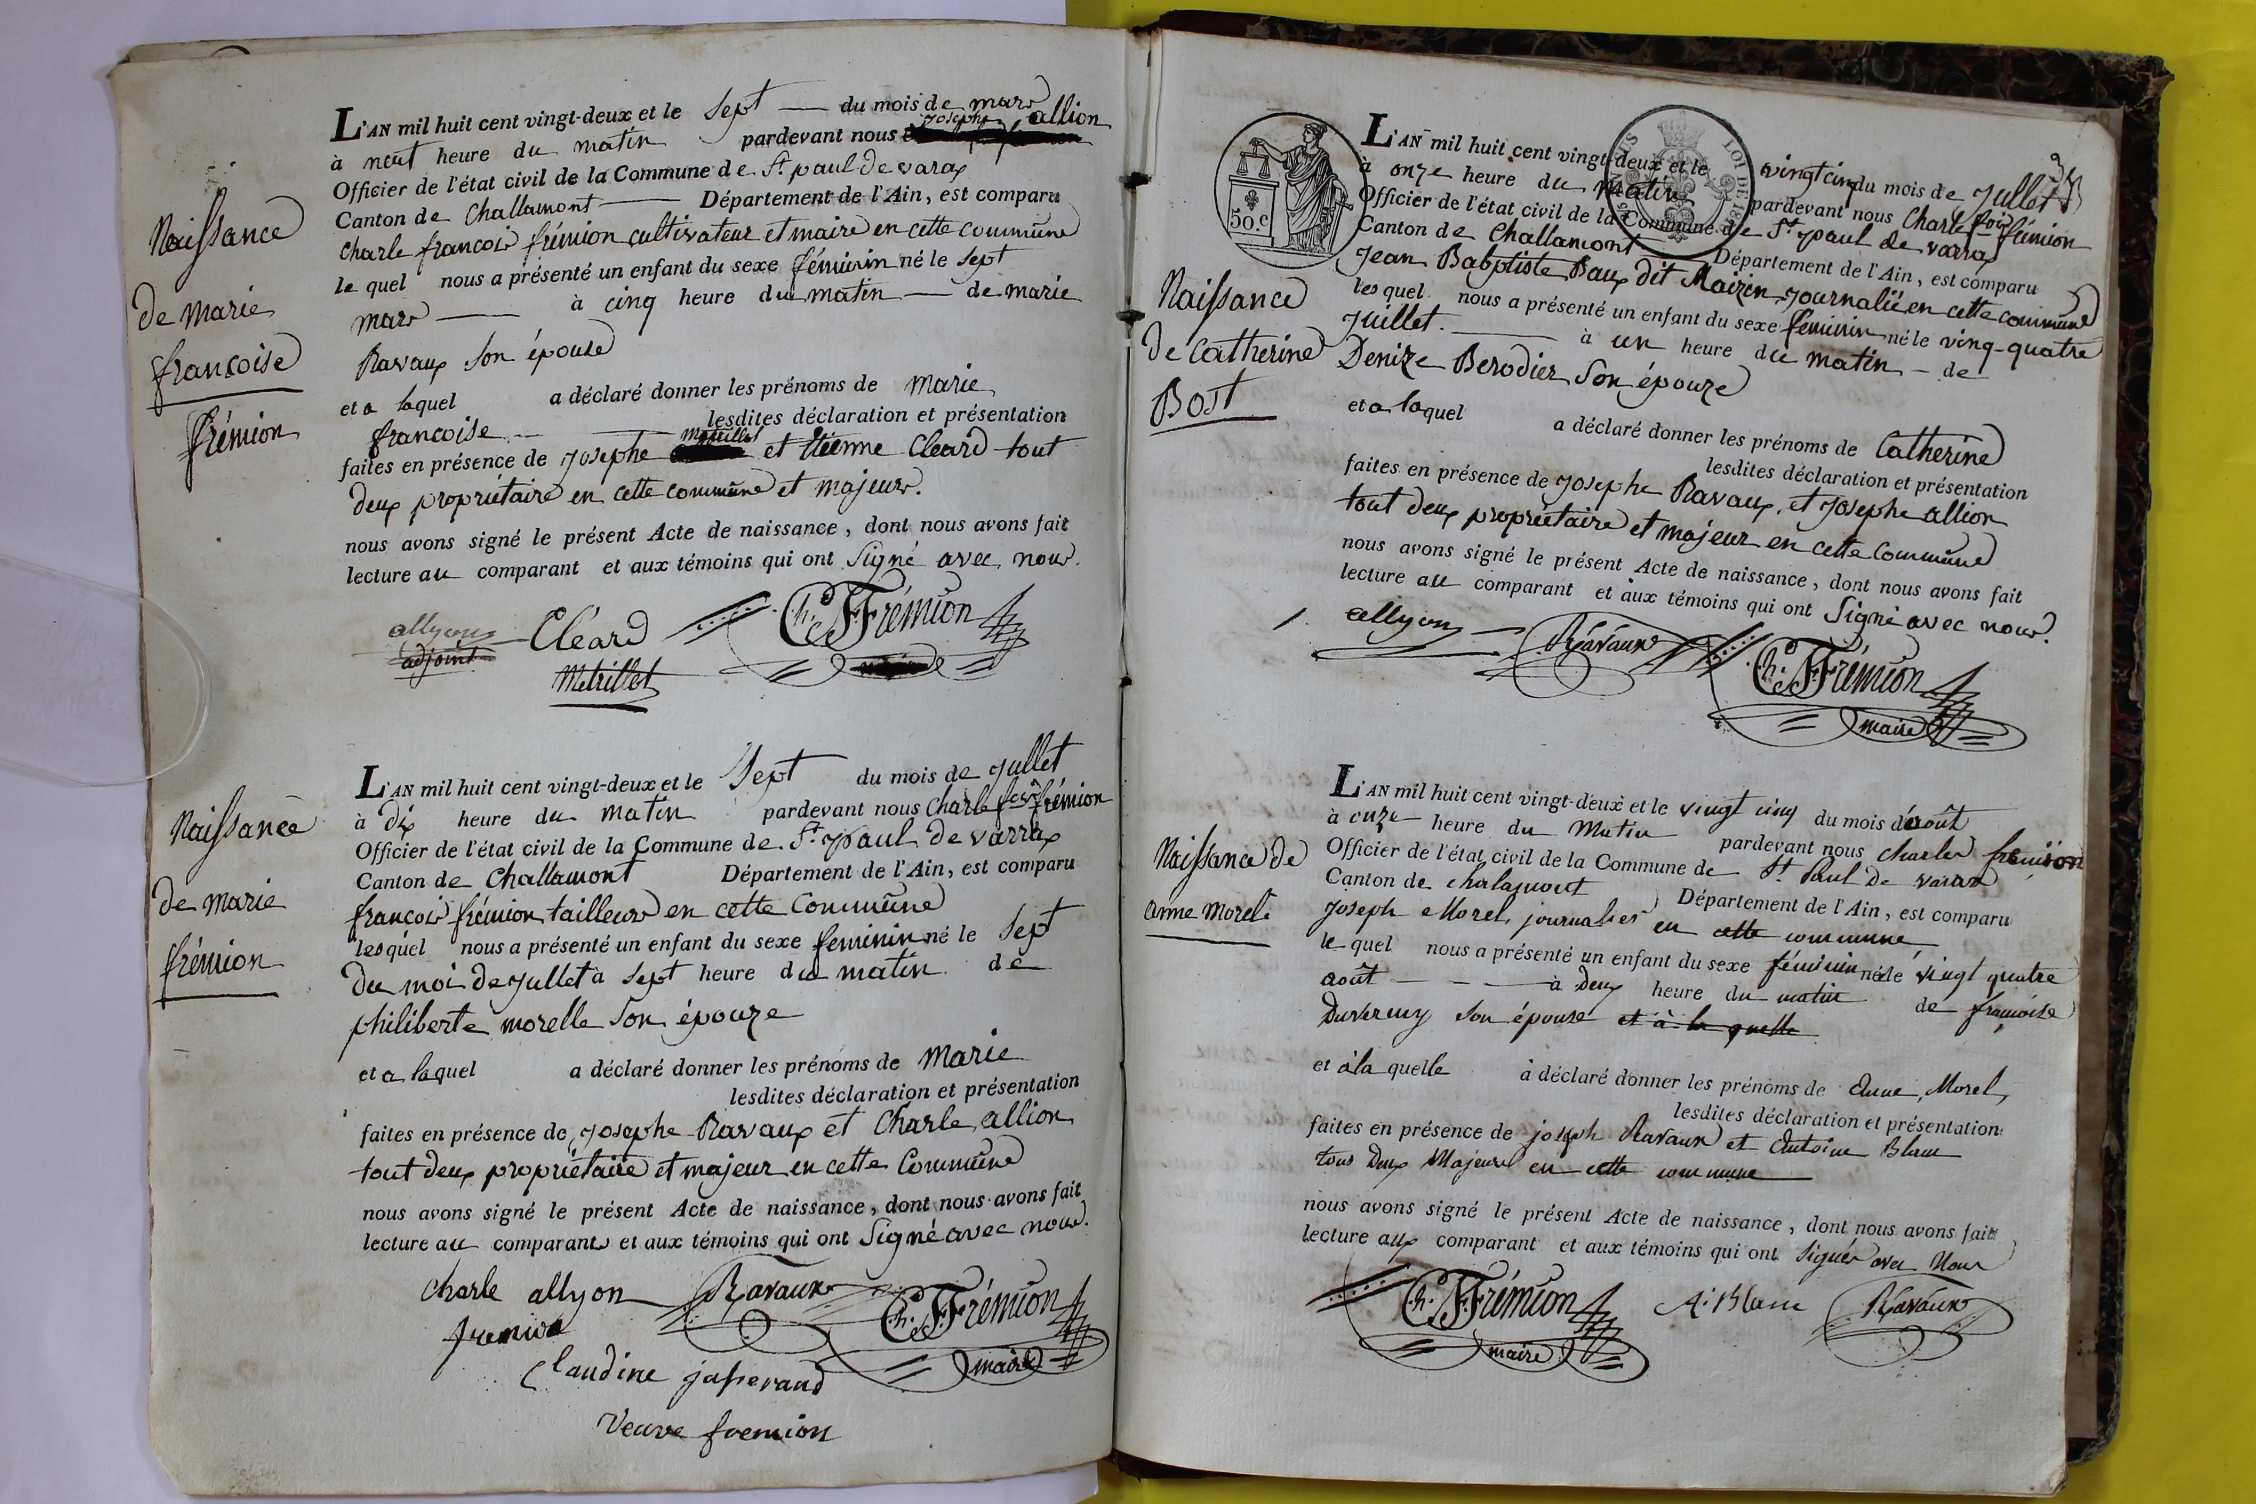 Naissance
de marie
françoise
frémion
L'AN mil huit cent vingt-deux et le Sept du mois de mars
à neuf heure du matin pardevant nous josephe allion
Officier de l'état civil de la Commune de St. paul de varax
Canton de Challamont Département de l'Ain, est comparu
Charle francois frémion cultivateur et maire en cette commune
le quel nous a présenté un enfant du sexe féminin né le sept
mars à cinq heure du matin de marie
Ravaux son épouse
et a laquel a déclaré donner les prénoms de marie
francoise lesdites déclaration et présentation
faites en présence de josephe Metrillet et Etienne Cleard tout
deux propriétaire en cette commune et majeurs.
nous avons signé le présent Acte de naissance, dont nous avons fait
lecture au comparant et aux témoins qui ont Signé avec nous.
allyon Cléard Ch. F. Frémion
adjoint Metrillet
Naissance
de marie
frémion
L'AN mil huit cent vingt-deux et le Sept du mois de jullet
à dix heure du matin pardevant nous Charle fçois frémion
Officier de l'état civil de la Commune de St. paul de varrax
Canton de Challamont Département de l'Ain, est comparu
françois frémion tailleur en cette Commune
lesquel nous a présenté un enfant du sexe feminin né le Sept
du moi de jullet à sept heure du matin de
philiberte morelle son épouze
et a laquel a déclaré donner les prénoms de marie
lesdites déclaration et présentation
faites en présence de josephe Ravaux et Charle allion
tout deux propriétaire et majeur en cette Commune
nous avons signé le présent Acte de naissance, dont nous avons fait
lecture au comparants et aux témoins qui ont Signé avec nous.
charle allyon Ravaux Ch. F. Frémion
fremion maire
Claudine jasserand
Veuve fremion
50.c
LOI DE
L'AN mil huit cent vingt-deux et le vingt cinq du mois de jullet
à onze heure du matin pardevant nous Charle fçois frémion
Officier de l'état civil de la Commune de St. paul de varrax
Canton de Challamont Département de l'Ain, est comparu
Jean Babptiste Baux dit Mairin journalié en cette commune
lesquel nous a présenté un enfant du sexe feminin né le vinq-quatre
Juillet. à un heure du matin de
Denize Berodier son épouze
Naissance
de Catherine
Bost
et a laquel a déclaré donner les prénoms de Catherine
lesdites déclaration et présentation
faites en présence de josephe Ravaux, et josephe allion
tout deux propriétaire et majeur en cette Commune
nous avons signé le présent Acte de naissance, dont nous avons fait
lecture au comparant et aux témoins qui ont Signé avec nous.
allyon Ravaux Ch. F. Frémion
maire
Naissance de
anne Morel
L'AN mil huit cent vingt-deux et le vingt cinq du mois d'août
à onze heure du Matin pardevant nous charles fremion
Officier de l'état civil de la Commune de St. Paul de varax
Canton de chalamont Département de l'Ain, est comparu
Joseph Morel, journalier en cette commune
le quel nous a présenté un enfant du sexe féminin né le vingt quatre
août à deux heure du matin de françoise
Duverney son épouse et à la quelle
et à la quelle a déclaré donner les prénoms de Anne, Morel,
lesdites déclaration et présentation
faites en présence de joseph Ravaux et Antoine Blanc
tous deux Majeurs en cette commune
nous avons signé le présent Acte de naissance, dont nous avons fait
lecture aux comparant et aux témoins qui ont signés avec Nous
Ch. F. Frémion A. Blanc Ravaux
maire